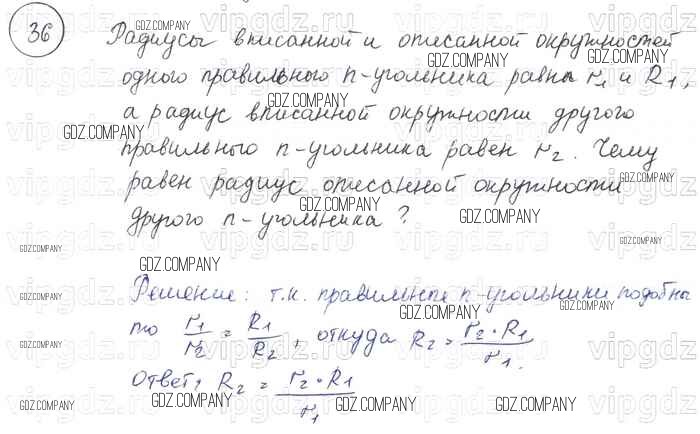 36 Радиусы вписанной и описанной окружностей
одного правильного n-угольника равны r₁ и R₁,
а радиус вписанной окружности другого
правильного n-угольника равен r₂. Чему
равен радиус описанной окружности
другого n-угольника?
Решение: т.к. правильные n-угольники подобны
то r₁/r₂ = R₁/R₂, откуда R₂ = r₂·R₁/r₁.
Ответ: R₂ = r₂·R₁/r₁
GDZ.COMPANY
vipgdz.ru